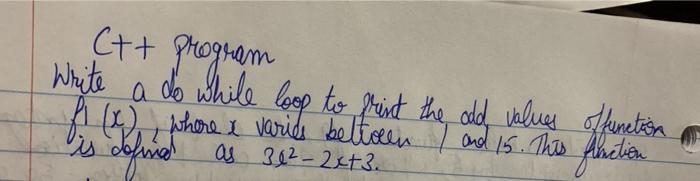 C++ program
Write a do while loop to print the odd values of function
f1 (x), where x varies between 1 and 15. This function
is defined as 3x² - 2x + 3.